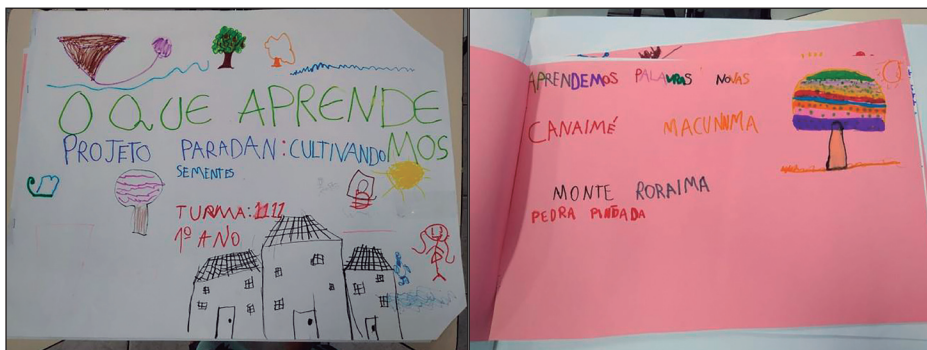 O QUE APRENDE
MOS
PROJETO PARADAN: CULTIVANDO
SEMENTES
TURMA: 1111
1º ANO
APRENDEMOS PALAVRAS NOVAS
CANAIMÉ MACUNIMA
MONTE RORAIMA
PEDRA PINTADA